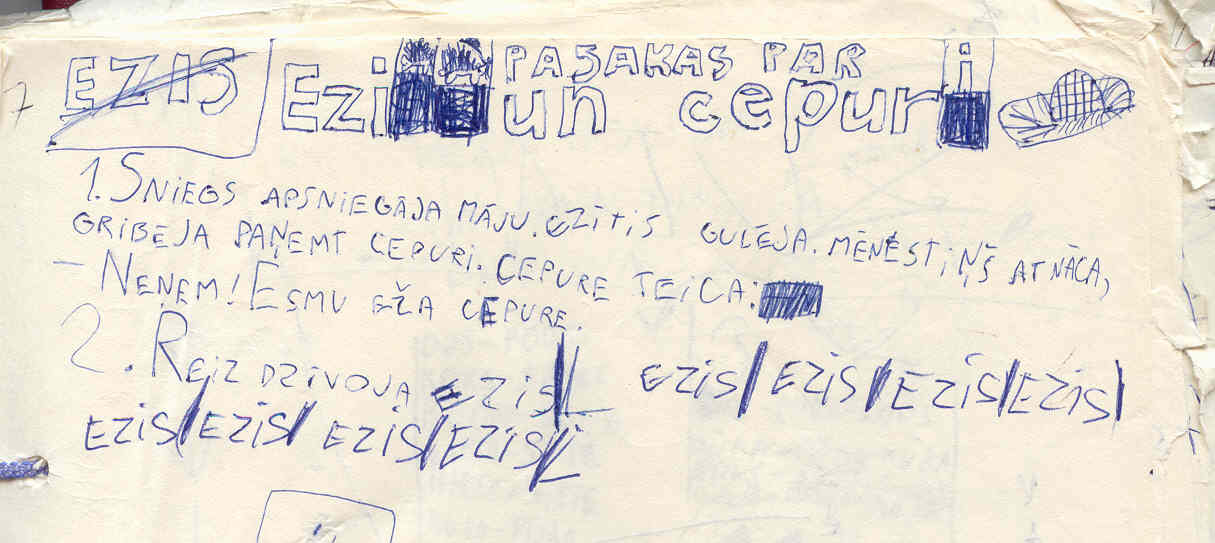 7 EZIS PASAKAS PAR
Ezi un cepuri
1. SNIEGS APSNIEGĀJA MĀJU. EZĪTIS GULĒJA. MĒNESTIŅŠ ATNĀCA,
GRIBĒJA PAŅEMT CEPURI. CEPURE TEICA:
– NEŅEM! ESMU EŽA CEPURE.
2. REIZ DZĪVOJA EZIS EZIS/EZIS/EZIS/EZIS/
EZIS/EZIS/EZIS/EZIS/